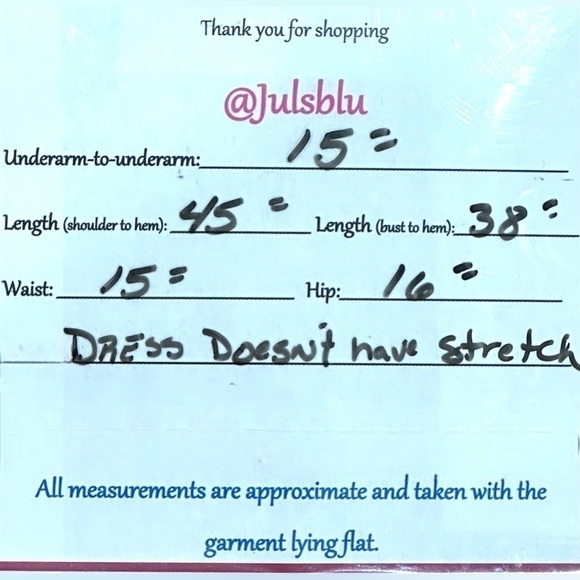 Thank you for shopping
@Julsblu
Underarm-to-underarm: 15"
Length (shoulder to hem): 45" Length (bust to hem): 38"
Waist: 15" Hip: 16"
DRESS Doesn't have stretch
All measurements are approximate and taken with the
garment lying flat.